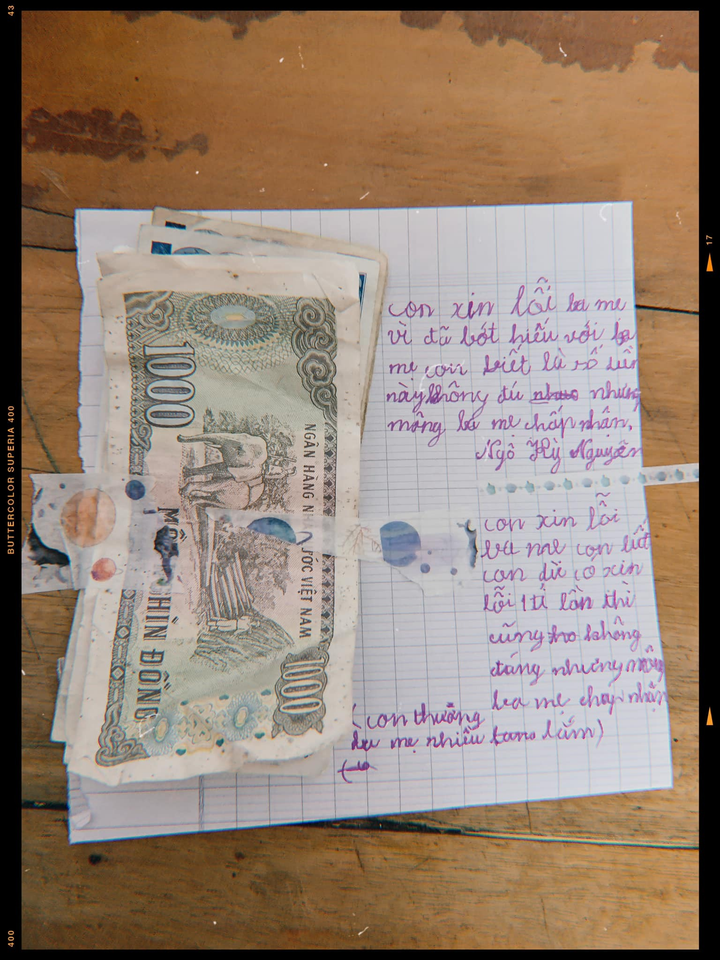 43
BUTTERCOLOR SUPERIA 400
400
17
1000
NGÂN HÀNG NHÀ NƯỚC VIỆT NAM
MỘT NGHÌN ĐỒNG
1000
con xin lỗi ba me
vì đã bớt hiếu với ba
mẹ con biết là số tiền
này không đủ nhưng
mông ba me chấp nhận,
Ngô Kỳ Nguyên
con xin lỗi
ba me con biết
con dù có xin
lỗi 1 tỉ lần thì
cũng không
đáng nhưng mông
ba me chấp nhận
(con thương
ba mẹ nhiều lắm)